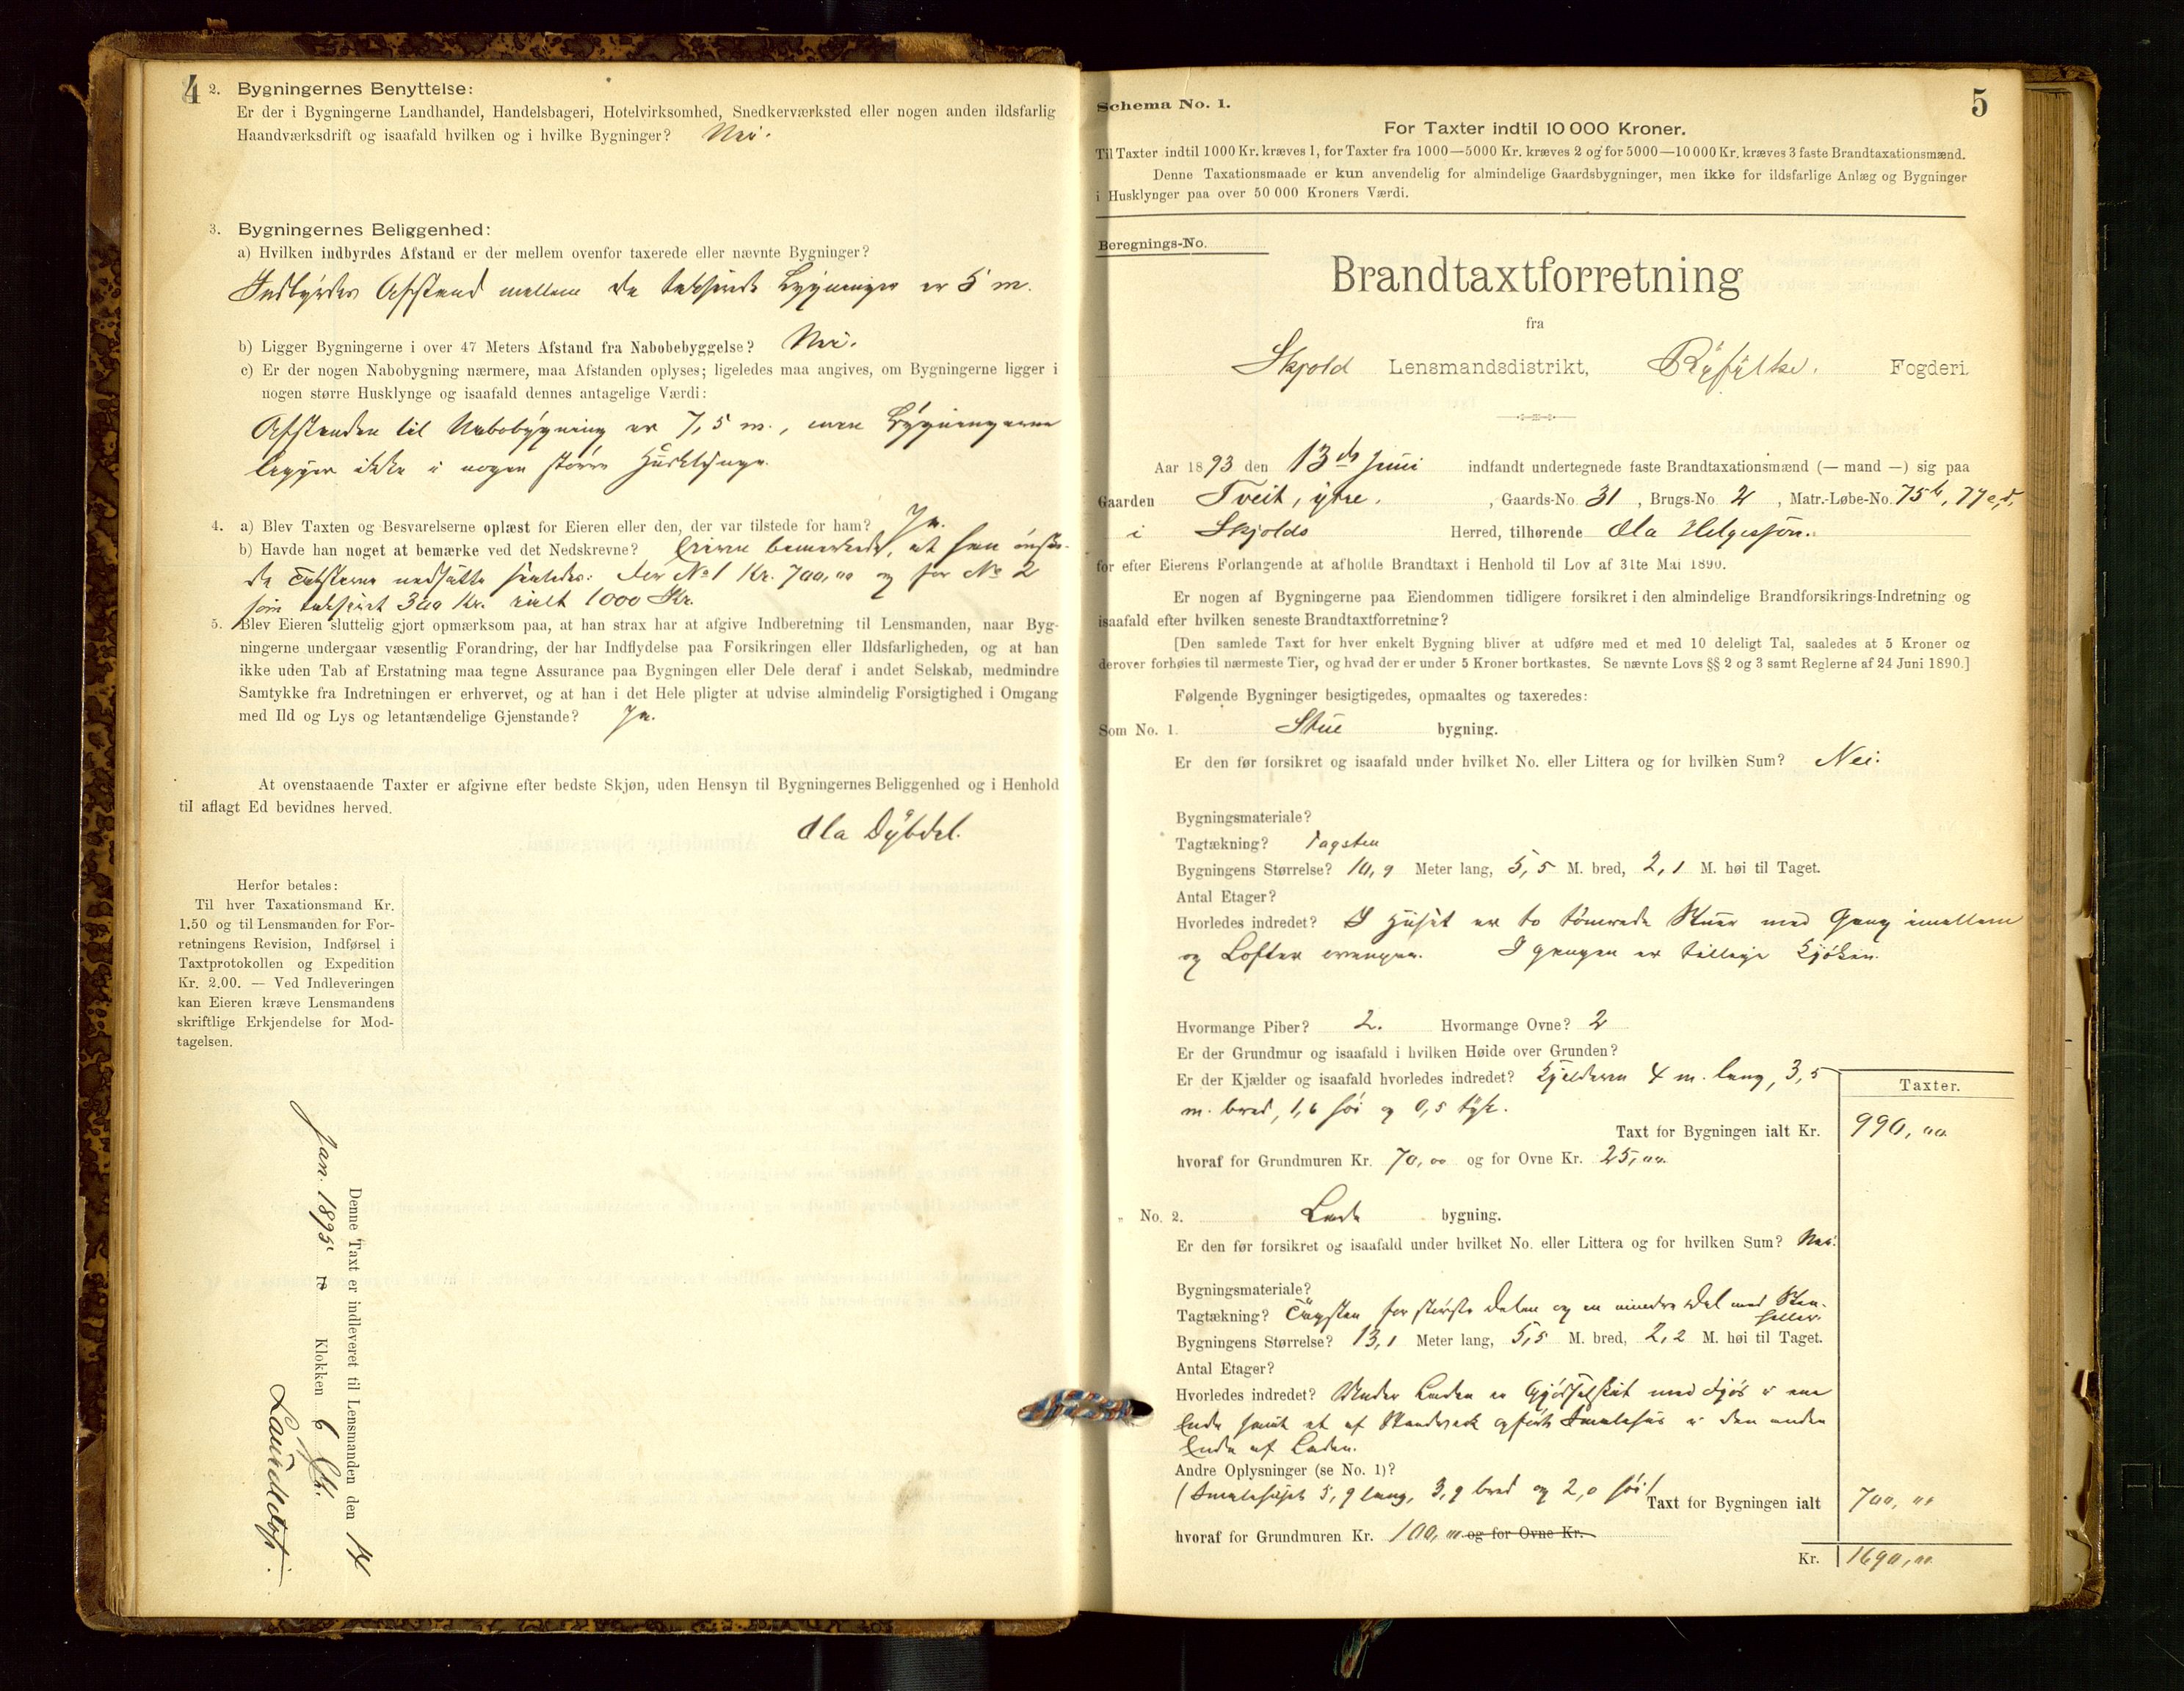 4
2. Bygningernes Benyttelse:
Er der i Bygningerne Landhandel, Handelsbageri, Hotelvirksomhed, Snedkerværksted eller nogen anden ildsfarlig
Haandværksdrift og isaafald hvilken og i hvilke Bygninger? Nei.
3. Bygningernes Beliggenhed:
a) Hvilken indbyrdes Afstand er der mellem ovenfor taxerede eller nævnte Bygninger?
Indbyrdes Afstand mellem de taxerede Bygninger er 5 m.
b) Ligger Bygningerne i over 47 Meters Afstand fra Nabobebyggelse? Nei.
c) Er der nogen Nabobygning nærmere, maa Afstanden oplyses; ligeledes maa angives, om Bygningerne ligger i
nogen større Husklynge og isaafald dennes antagelige Værdi:
Afstanden til Nabobygning er 7,5 m., men Bygningerne
ligger ikke i nogen større Husklynge.
4. a) Blev Taxten og Besvarelserne oplæst for Eieren eller den, der var tilstede for ham? Ja.
b) Havde han noget at bemærke ved det Nedskrevne? Eieren bemerkede, at han ønske-
de Taksterne nedsatte saaledes: for No 1 Kr. 700,00 og for No 2
som taxeret 300 Kr. ialt 1000 Kr.
5. Blev Eieren sluttelig gjort opmærksom paa, at han strax har at afgive Indberetning til Lensmanden, naar Byg-
ningerne undergaar væsentlig Forandring, der har Indflydelse paa Forsikringen eller Ildsfarligheden, og at han
ikke uden Tab af Erstatning maa tegne Assurance paa Bygningen eller Dele deraf i andet Selskab, medmindre
Samtykke fra Indretningen er erhvervet, og at han i det Hele pligter at udvise almindelig Forsigtighed i Omgang
med Ild og Lys og letantændelige Gjenstande? Ja.
At ovenstaaende Taxter er afgivne efter bedste Skjøn, uden Hensyn til Bygningernes Beliggenhed og i Henhold
til aflagt Ed bevidnes herved.
Ola Dybdal.
Herfor betales:
Til hver Taxationsmand Kr.
1.50 og til Lensmanden for For-
retningens Revision, Indførsel i
Taxtprotokollen og Expedition
Kr. 2.00. — Ved Indleveringen
kan Eieren kræve Lensmandens
skriftlige Erkjendelse for Mod-
tagelsen.
Denne Taxt er indleveret til Lensmanden den 14
Jan. 1895 Klokken 6
5
Schema No. 1.
For Taxter indtil 10 000 Kroner.
Til Taxter indtil 1000 Kr. kræves 1, for Taxter fra 1000—5000 Kr. kræves 2 og for 5000—10 000 Kr. kræves 3 faste Brandtaxationsmænd.
Denne Taxationsmaade er kun anvendelig for almindelige Gaardsbygninger, men ikke for ildsfarlige Anlæg og Bygninger
i Husklynger paa over 50 000 Kroners Værdi.
Beregnings-No.
Brandtaxtforretning
fra
Skjold Lensmandsdistrikt, Ryfylke. Fogderi.
Aar 1893 den 13de Juni indfandt undertegnede faste Brandtaxationsmænd (— mand —) sig paa
Gaarden Tveit, ytre. , Gaards-No. 31 , Brugs-No. 2 , Matr.-Løbe-No. 75b, 77c,d,
i Skjolds Herred, tilhørende Ola Helgesson.
for efter Eierens Forlangende at afholde Brandtaxt i Henhold til Lov af 31te Mai 1890.
Er nogen af Bygningerne paa Eiendommen tidligere forsikret i den almindelige Brandforsikrings-Indretning og
isaafald efter hvilken seneste Brandtaxtforretning?
[Den samlede Taxt for hver enkelt Bygning bliver at udføre med et med 10 deleligt Tal, saaledes at 5 Kroner og
derover forhøies til nærmeste Tier, og hvad der er under 5 Kroner bortkastes. Se nævnte Lovs §§ 2 og 3 samt Reglerne af 24 Juni 1890.]
Følgende Bygninger besigtigedes, opmaaltes og taxeredes:
Som No. 1. Stue bygning.
Er den før forsikret og isaafald under hvilket No. eller Littera og for hvilken Sum? Nei.
Bygningsmateriale?
Tagtækning? Tagsten
Bygningens Størrelse? 10,9 Meter lang, 5,5 M. bred, 2,1 M. høi til Taget.
Antal Etager?
Hvorledes indredet? I Huset er to tømrede Stuer med Gang imellem
og Lofter ovenpaa. I gangen er tillige Kjøken.
Hvormange Piber? 2. Hvormange Ovne? 2
Er der Grundmur og isaafald i hvilken Høide over Grunden?
Er der Kjælder og isaafald hvorledes indredet? Kjelderen 4 m. lang, 3,5
m. bred, 1,6 høi og 0,5 tyk.
Taxter.
Taxt for Bygningen ialt Kr. 990,00
hvoraf for Grundmuren Kr. 70,00 og for Ovne Kr. 25,00
„ No. 2. Lade bygning.
Er den før forsikret og isaafald under hvilket No. eller Littera og for hvilken Sum? Nei.
Bygningsmateriale?
Tagtækning? Tagsten for største delen og en mindre del med Sten-
heller.
Bygningens Størrelse? 13,1 Meter lang, 5,5 M. bred, 2,2 M. høi til Taget.
Antal Etager?
Hvorledes indredet? Under Laden er Gjødselskut med Fjøs i ene
Ende samt et af Standverk opført Smalehus i den anden
Ende af Laden.
Andre Oplysninger (se No. 1)?
(Smalehuset 5,9 lang, 3,9 bred og 2,0 høi) Taxt for Bygningen ialt 700,00
hvoraf for Grundmuren Kr. 100,00 og for Ovne Kr.
Kr. 1690,00